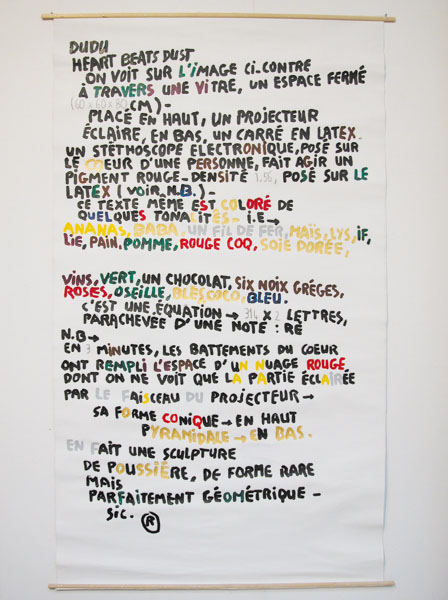 DUDU
HEART BEATS DUST
ON VOIT SUR L'IMAGE CI-CONTRE
À TRAVERS UNE VITRE, UN ESPACE FERMÉ
(60 x 60 x 80 CM) -
PLACÉ EN HAUT, UN PROJECTEUR
ÉCLAIRE, EN BAS, UN CARRÉ EN LATEX.
UN STÉTHOSCOPE ELECTRONIQUE, POSÉ SUR
LE CŒUR D'UNE PERSONNE, FAIT AGIR UN
PIGMENT ROUGE-DENSITÉ 1,56, POSÉ SUR LE
LATEX (VOIR N.B.) -
CE TEXTE MÊME EST COLORÉ DE
QUELQUES TONALITÉS - I.E →
ANANAS, BABA, UN FIL DE FER, MAÏS, LYS, IF,
LIE, PAIN, POMME, ROUGE COQ, SOIE DORÉE,
VINS, VERT, UN CHOCOLAT, SIX NOIX GRÈGES,
ROSES, OSEILLE, BLÉS, COCO, BLEU.
C'EST UNE ÉQUATION → 314 x 2 LETTRES,
PARACHEVÉE D'UNE NOTE : RÉ
N.B →
EN 3 MINUTES, LES BATTEMENTS DU COEUR
ONT REMPLI L'ESPACE D'UN NUAGE ROUGE,
DONT ON NE VOIT QUE LA PARTIE ÉCLAIRÉE
PAR LE FAISCEAU DU PROJECTEUR →
SA FORME CONIQUE → EN HAUT
PYRAMIDALE → EN BAS.
EN FAIT UNE SCULPTURE
DE POUSSIÈRE, DE FORME RARE
MAIS
PARFAITEMENT GÉOMÉTRIQUE -
SIC. ®